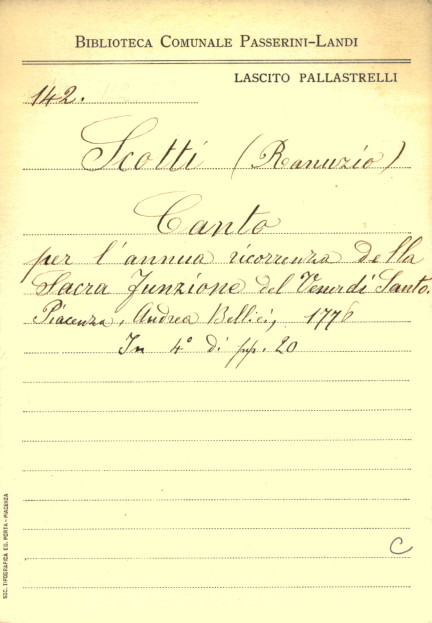 BIBLIOTECA COMUNALE PASSERINI-LANDI
LASCITO PALLASTRELLI
142.
Scotti (Ranuzio)
Canto
per l'annua ricorrenza della
Sacra Funzione del Venerdì Santo.
Piacenza, Andrea Bellici, 1776
In 4° di pp. 20
C
SOC. TIPOGRAFICA ED. PORTA - PIACENZA